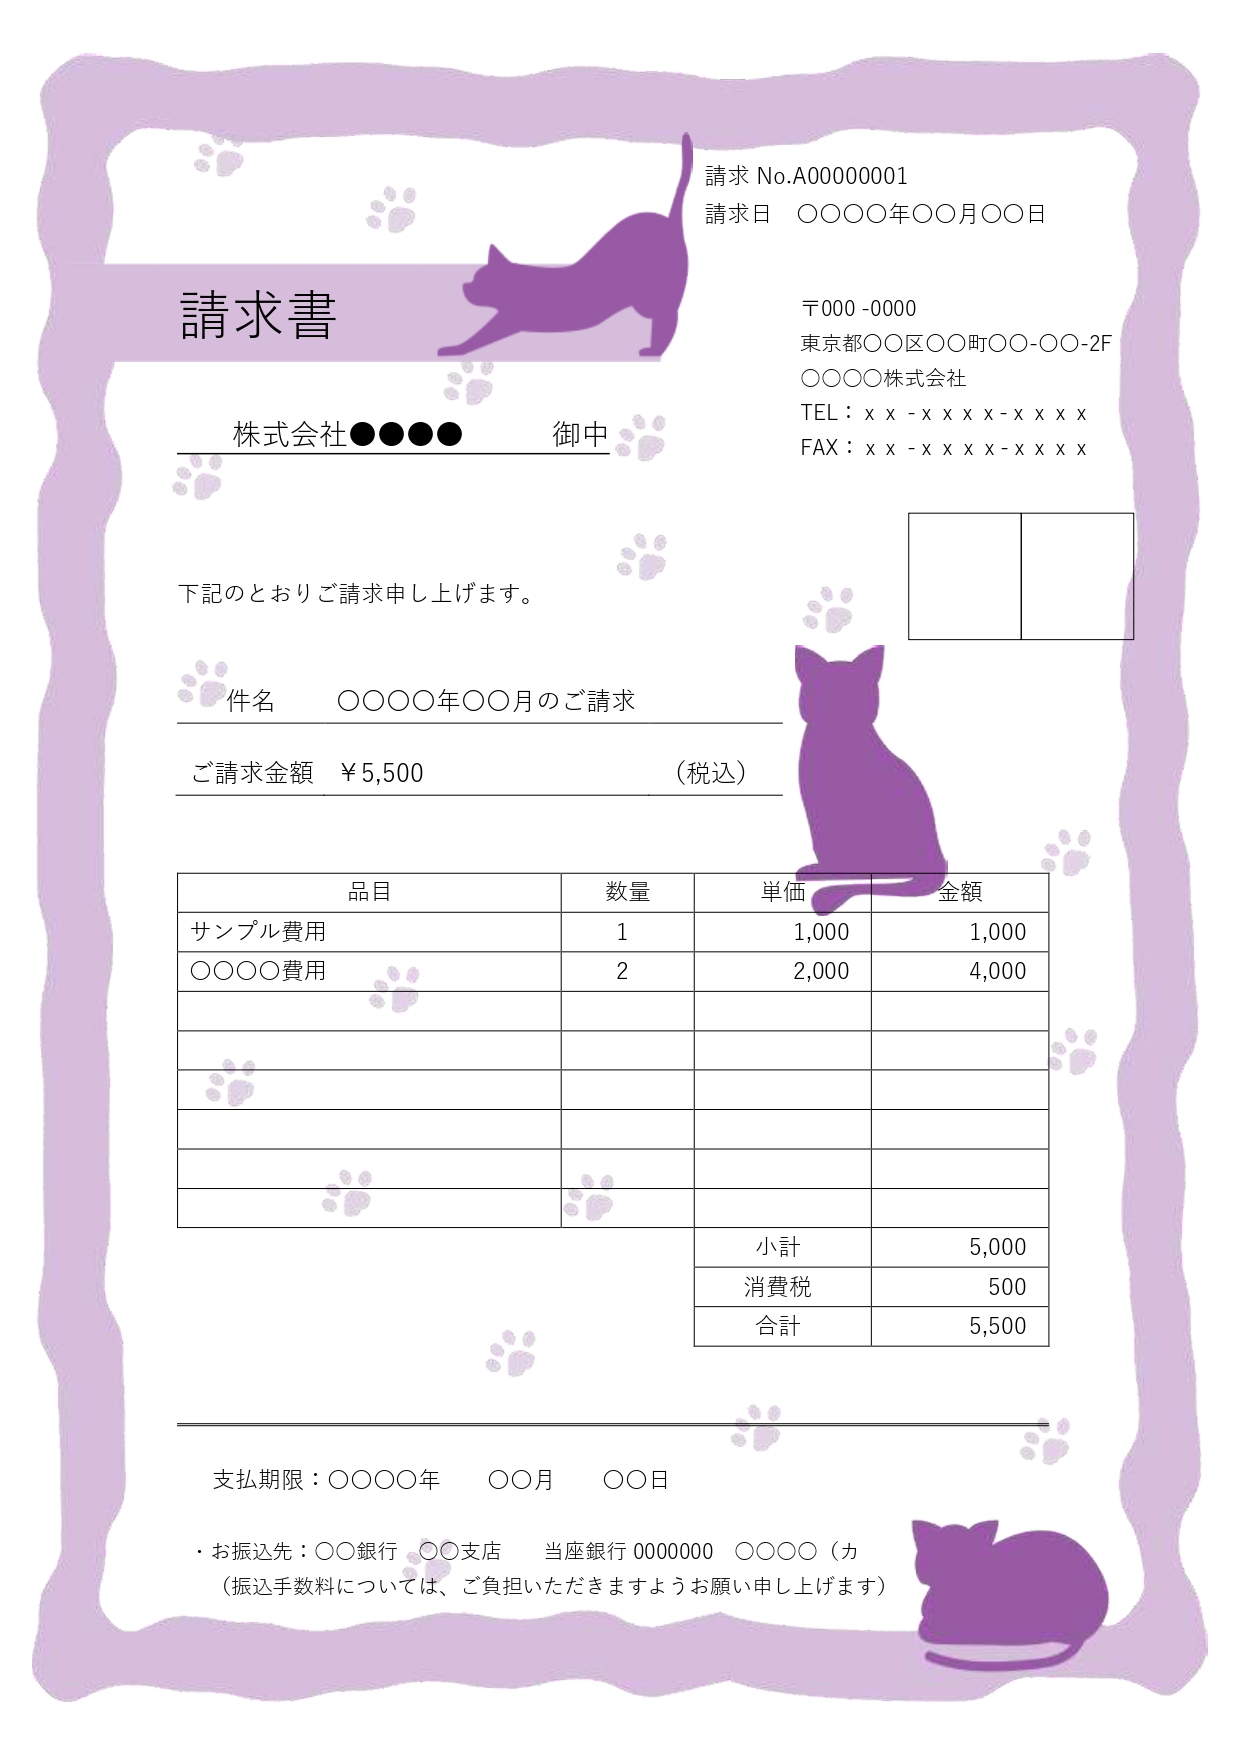 請求 No.A00000001
請求日　〇〇〇〇年〇〇月〇〇日
請求書
〒000 -0000
東京都〇〇区〇〇町〇〇-〇〇-2F
〇〇〇〇株式会社
TEL：ｘｘ-ｘｘｘｘ-ｘｘｘｘ
FAX：ｘｘ-ｘｘｘｘ-ｘｘｘｘ
株式会社●●●●　　　御中
下記のとおりご請求申し上げます。
件名　〇〇〇〇年〇〇月のご請求
ご請求金額　￥5,500　（税込）
品目　数量　単価　金額
サンプル費用　1　1,000　1,000
〇〇〇〇費用　2　2,000　4,000
小計　5,000
消費税　500
合計　5,500
支払期限：〇〇〇〇年　　〇〇月　　〇〇日
・お振込先：〇〇銀行　〇〇支店　　当座銀行 0000000　〇〇〇〇（カ
（振込手数料については、ご負担いただきますようお願い申し上げます）